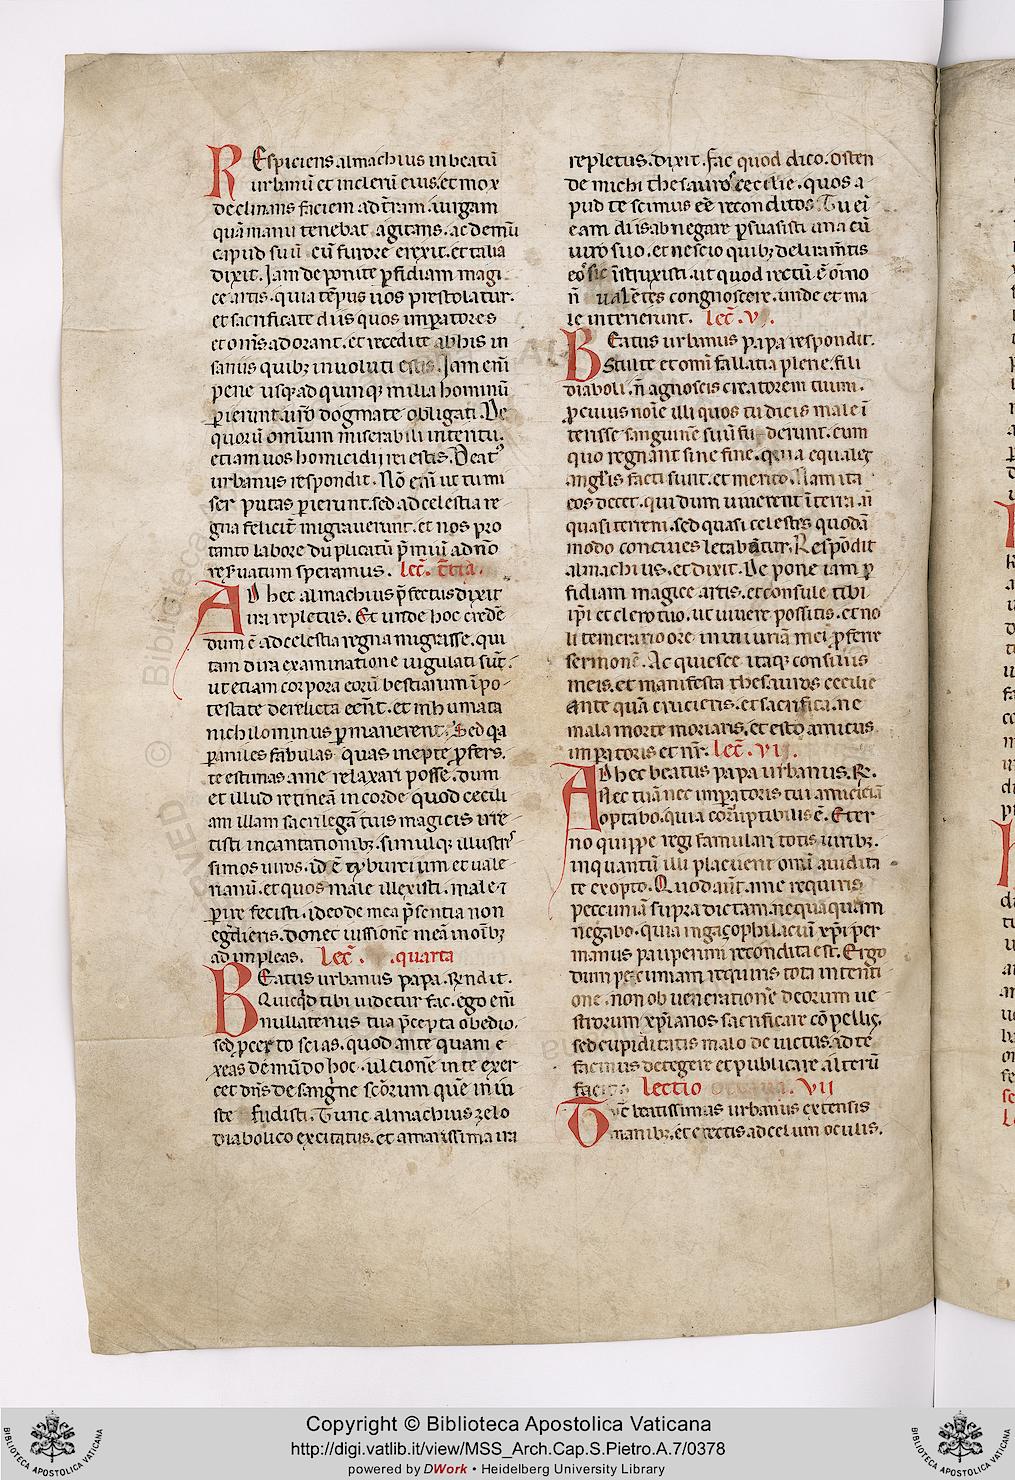 REspiciens almachius in beatū
urbanū et in clerū eius. et mox
declinans faciem ad dexteram. uirgam
quā manu tenebat agitans. ac demū
capud suū cū furore erexit. et talia
dixit. Iam deponite p̄fidiam magi
ce artis. quia tēpus uos prestolatur.
et sacrificate diis quos imperatores
et om̄s adorant. et recedite ab his in
sanus quibꝫ inuoluti estis. Iam eni͂
pene usqꝫ ad quinqꝫ milia hominū
perierunt. ur̄o dogmate obligati. De
quorū omnium miserabili interitu.
etiam uos homicidij rei estis. Beatꝰ
urbanus respondit. Nō eni͂ ut tu mi
ser putas perierunt. sed ad celestia re
gna felicit̄ migrauerunt. et nos pro
tanto labore duplicatū p̄miū ad no
reseruatum speramus. lec̄. t̄cia.
AD hec almachius p̄fectus dixit
ira repletus. Et unde hoc credē
dum ē ad celestia regna migrasse. qui
tam dira examinatione iugulati sūt.
ut etiam corpora eorū bestiarum ī po-
testate derelicta eēnt. et inhumata
nichilominus permanerent. Sed qa
p aniles fabulas quas inepte profers.
te estimas a me relaxari posse. dum
et illud retineā in corde quod cecili
am illam sacrilegā tuis magicis irre-
tisti incantationibꝫ. simulqꝫ illustrꝭ
simos uiros. id ē tyburtium et uale-
rianū. et quos male illexisti. male ⁊
perire fecisti. ideo de mea p̄sentia non
egredieris. donec iussionē meā in oībꝫ
adimpleas. Lec̄. quarta
BEatus urbanus papa. rn̄dit.
Quicqd tibi uidetur fac. ego eni͂
nullatenus tua p̄cepta obedio.
sed pcer to scias. quod ante quam e
xeas de mūdo hoc. ulcionē in te exer
cet dn̄s de sangͥne sc̄orum quē in iu
ste fudisti. Tunc almachius zelo
diabolico excitatus. et amarissima ira
repletus. dixit. Fac quod dico. osten
de michi thesauros cecilie. quos a-
pud te scimus eē reconditos. Tu eī
eam diis abnegare p̄suasisti una cū
uiro suo. et nescio quibꝫ deliram̄tis
eos sic īstruxisti. ut quod rectū ē oīno
n̄ ualētes congnoscere. unde et ma
le interierunt. lec̄. v.
BEatus urbanus papa respondit.
Stulte et omī fallatia plene. fili
diaboli. n̄ agnoscis creatorem tuum.
p̄ cuius noīe illi quos tu dicis male ī
terisse sanguinē suū fu-derunt. cum
quo regnant sine fine. quia equales
angl̄is facti sunt. et merito. Nam ita
eos decet. qui dum uiuerent ī terra. n̄
quasi terreni. sed quasi celestes quodā
modo conciues letabātur. Respōdit
almachius. et dixit. Depone iam p̄
fidiam magice artis. et consule tibi
ipī et clero tuo. ut uiuere possitis. et no
li temerario ore in iniuriā mei p̄ferre
sermonē. Acquiesce itaqꝫ consiliis
meis. et manifesta thesauros cecilie
ante quā crucieris. et sacrifica. ne
mala morte moriaris. et esto amicus
imperatoris et nr̄. lec̄. vij.
AD hec beatus papa urbanus. R.
Nec tuā nec imperatoris tui amiciciā
optabo. quia corruptibilis ē. Eter
no quippe regi famulari totis uiribꝫ.
inquantū illi placuerit omī auidita
te exopto. Quod aut̄ a me requiris
peccuniā supradictam. nequaquam
negabo. quia in gaçophilaciū xp̄i per
manus pauperum recondita est. Ergo
dum peccuniam requiris tota intenti-
one. non ob uenerationē deorum ue-
strorum xp̄ianos sacrificare cōpellis.
sed cupiditatis malo deuictus. ad te
facinus detegere et publicare alterū
facitis lectio VII
Tūc beatissimus urbanus extensis
manibꝫ. et erectis ad celum oculis.
Copyright © Biblioteca Apostolica Vaticana
http://digi.vatlib.it/view/MSS_Arch.Cap.S.Pietro.A.7/0378
powered by DWork • Heidelberg University Library
BIBLIOTECA APOSTOLICA VATICANA
BIBLIOTECA APOSTOLICA VATICANA